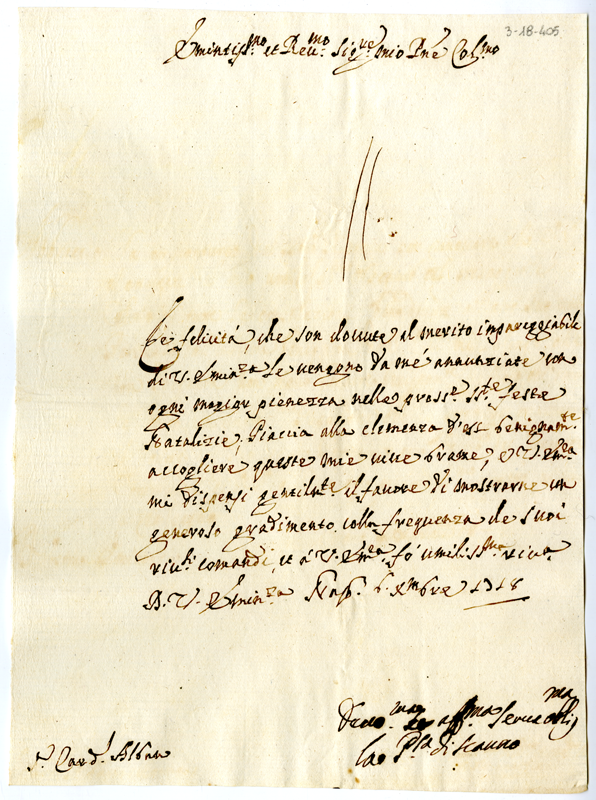 3-18-405
Emintiss.mo et Reu.mo Sig.re mio Pne Col.mo
Le felicità, che son douute al merito impareggiabile
di V. Emin.za Le uengono da mé annunziate con
ogni magior pienezza nelle pross.e S.te feste
Natalizie, Piaccia alla clemenza d'es. benignam.te
accogliere queste mie uiue brame, e V. Em.za
mi dispensi gentilm.te il fauore di mostrarne un
generoso gradimento colla frequenza de suoi
riu.ti comandi, et à V. Em.za fò umilis.ma riua
D. V. Emin.za Nap. 6. Xmbre 1718
Deuo.ma et aff.ma Serua obli.ma
La P.ssa di Scanno
S.r Card.l Alban